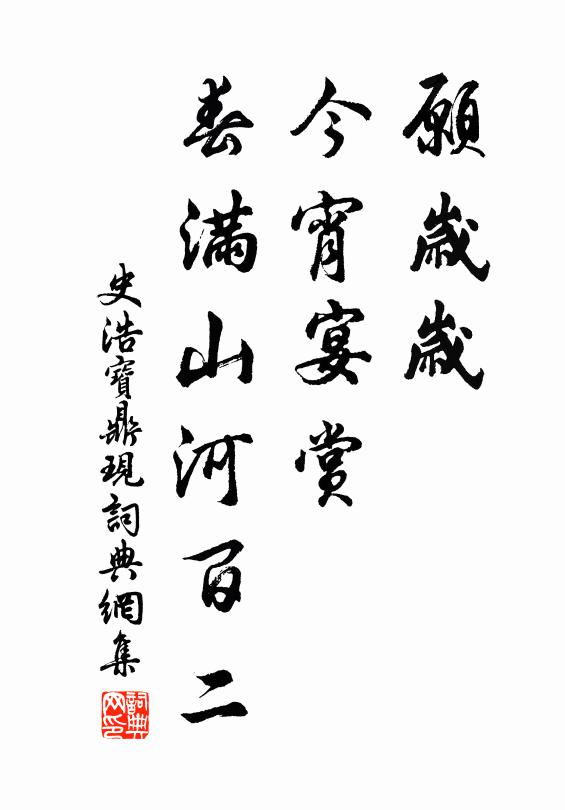 願歲歲
今宵宴賞
春滿山河百二
史浩寶鼎現詞典網集
詞典網印